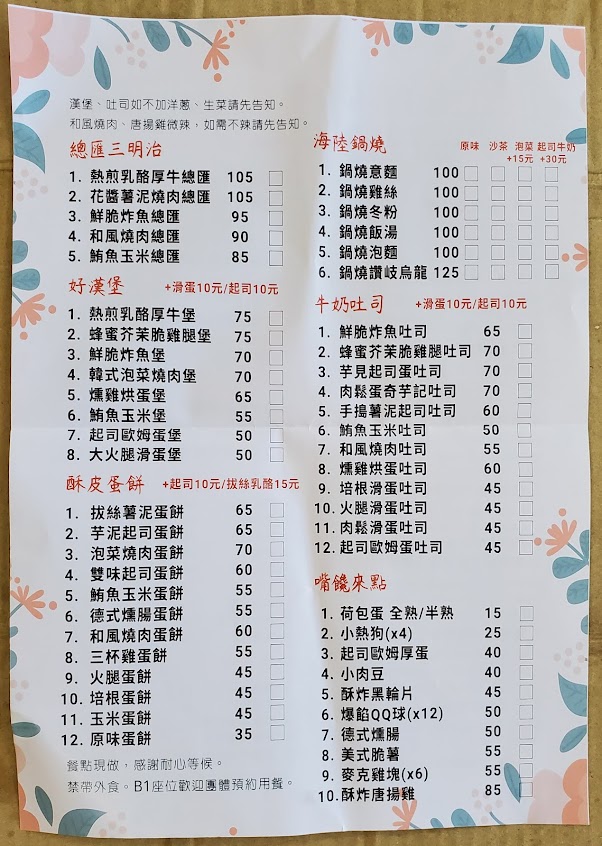 漢堡、吐司如不加洋蔥、生菜請先告知。
和風燒肉、唐揚雞微辣，如需不辣請先告知。
總匯三明治
1. 熱煎乳酪厚牛總匯 105
2. 花醬薯泥燒肉總匯 105
3. 鮮脆炸魚總匯 95
4. 和風燒肉總匯 90
5. 鮪魚玉米總匯 85
好漢堡 +滑蛋10元/起司10元
1. 熱煎乳酪厚牛堡 75
2. 蜂蜜芥茉脆雞腿堡 75
3. 鮮脆炸魚堡 70
4. 韓式泡菜燒肉堡 70
5. 燻雞烘蛋堡 65
6. 鮪魚玉米堡 55
7. 起司歐姆蛋堡 50
8. 大火腿滑蛋堡 50
酥皮蛋餅 +起司10元/拔絲乳酪15元
1. 拔絲薯泥蛋餅 65
2. 芋泥起司蛋餅 65
3. 泡菜燒肉蛋餅 70
4. 雙味起司蛋餅 60
5. 鮪魚玉米蛋餅 55
6. 德式燻腸蛋餅 55
7. 和風燒肉蛋餅 60
8. 三杯雞蛋餅 55
9. 火腿蛋餅 45
10. 培根蛋餅 45
11. 玉米蛋餅 45
12. 原味蛋餅 35
餐點現做，感謝耐心等候。
禁帶外食。B1座位歡迎團體預約用餐。
海陸鍋燒 原味 沙茶 泡菜 起司牛奶
+15元 +30元
1. 鍋燒意麵 100
2. 鍋燒雞絲 100
3. 鍋燒冬粉 100
4. 鍋燒飯湯 100
5. 鍋燒泡麵 100
6. 鍋燒讚岐烏龍 125
牛奶吐司 +滑蛋10元/起司10元
1. 鮮脆炸魚吐司 65
2. 蜂蜜芥茉脆雞腿吐司 70
3. 芋見起司蛋吐司 70
4. 肉鬆蛋奇芋記吐司 70
5. 手搗薯泥起司吐司 60
6. 鮪魚玉米吐司 50
7. 和風燒肉吐司 55
8. 燻雞烘蛋吐司 60
9. 培根滑蛋吐司 45
10. 火腿滑蛋吐司 45
11. 肉鬆滑蛋吐司 45
12. 起司歐姆蛋吐司 45
嘴饞來點
1. 荷包蛋 全熟/半熟 15
2. 小熱狗(x4) 25
3. 起司歐姆厚蛋 40
4. 小肉豆 40
5. 酥炸黑輪片 45
6. 爆餡QQ球(x12) 50
7. 德式燻腸 50
8. 美式脆薯 55
9. 麥克雞塊(x6) 55
10. 酥炸唐揚雞 85